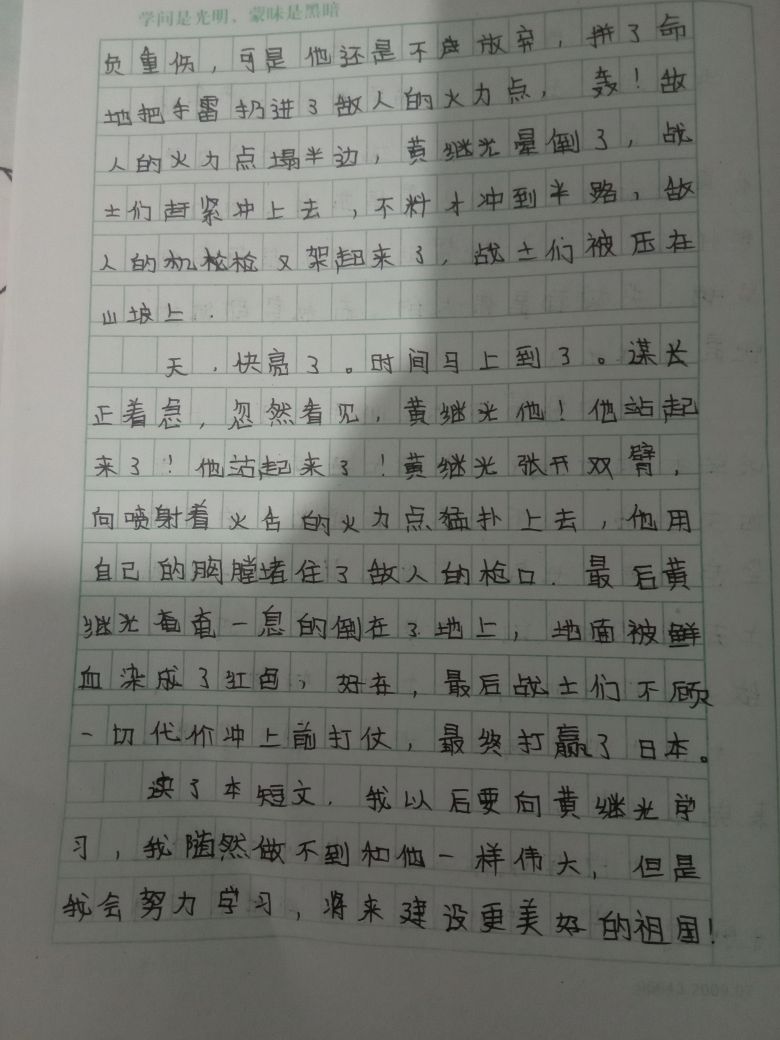 学问是光明，蒙昧是黑暗
负重伤，可是他还是不声放弃，拼了命
地把手雷扔进了敌人的火力点，轰！敌
人的火力点塌半边，黄继光晕倒了，战
士们赶紧冲上去，不料才冲到半路，敌
人的机枪枪又架起来了，战士们被压在
山坡上．
天，快亮了。时间马上到了。谋长
正着急，忽然看见，黄继光他！他站起
来了！他站起来了！黄继光张开双臂，
向喷射着火舌的火力点猛扑上去，他用
自己的胸膛堵住了敌人的枪口．最后黄
继光奄奄一息的倒在了地上，地面被鲜
血染成了红色，好在，最后战士们不顾
一切代价冲上前打仗，最终打赢了日本。
读了本短文．我以后要向黄继光学
习，我随然做不到和他一样伟大，但是
我会努力学习，将来建设更美好的祖国！